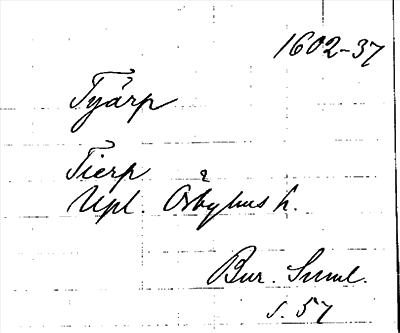 1602-37
Tyärp
Tierp
Upl. Örbyhus h.
Bur. Suml.
s. 57